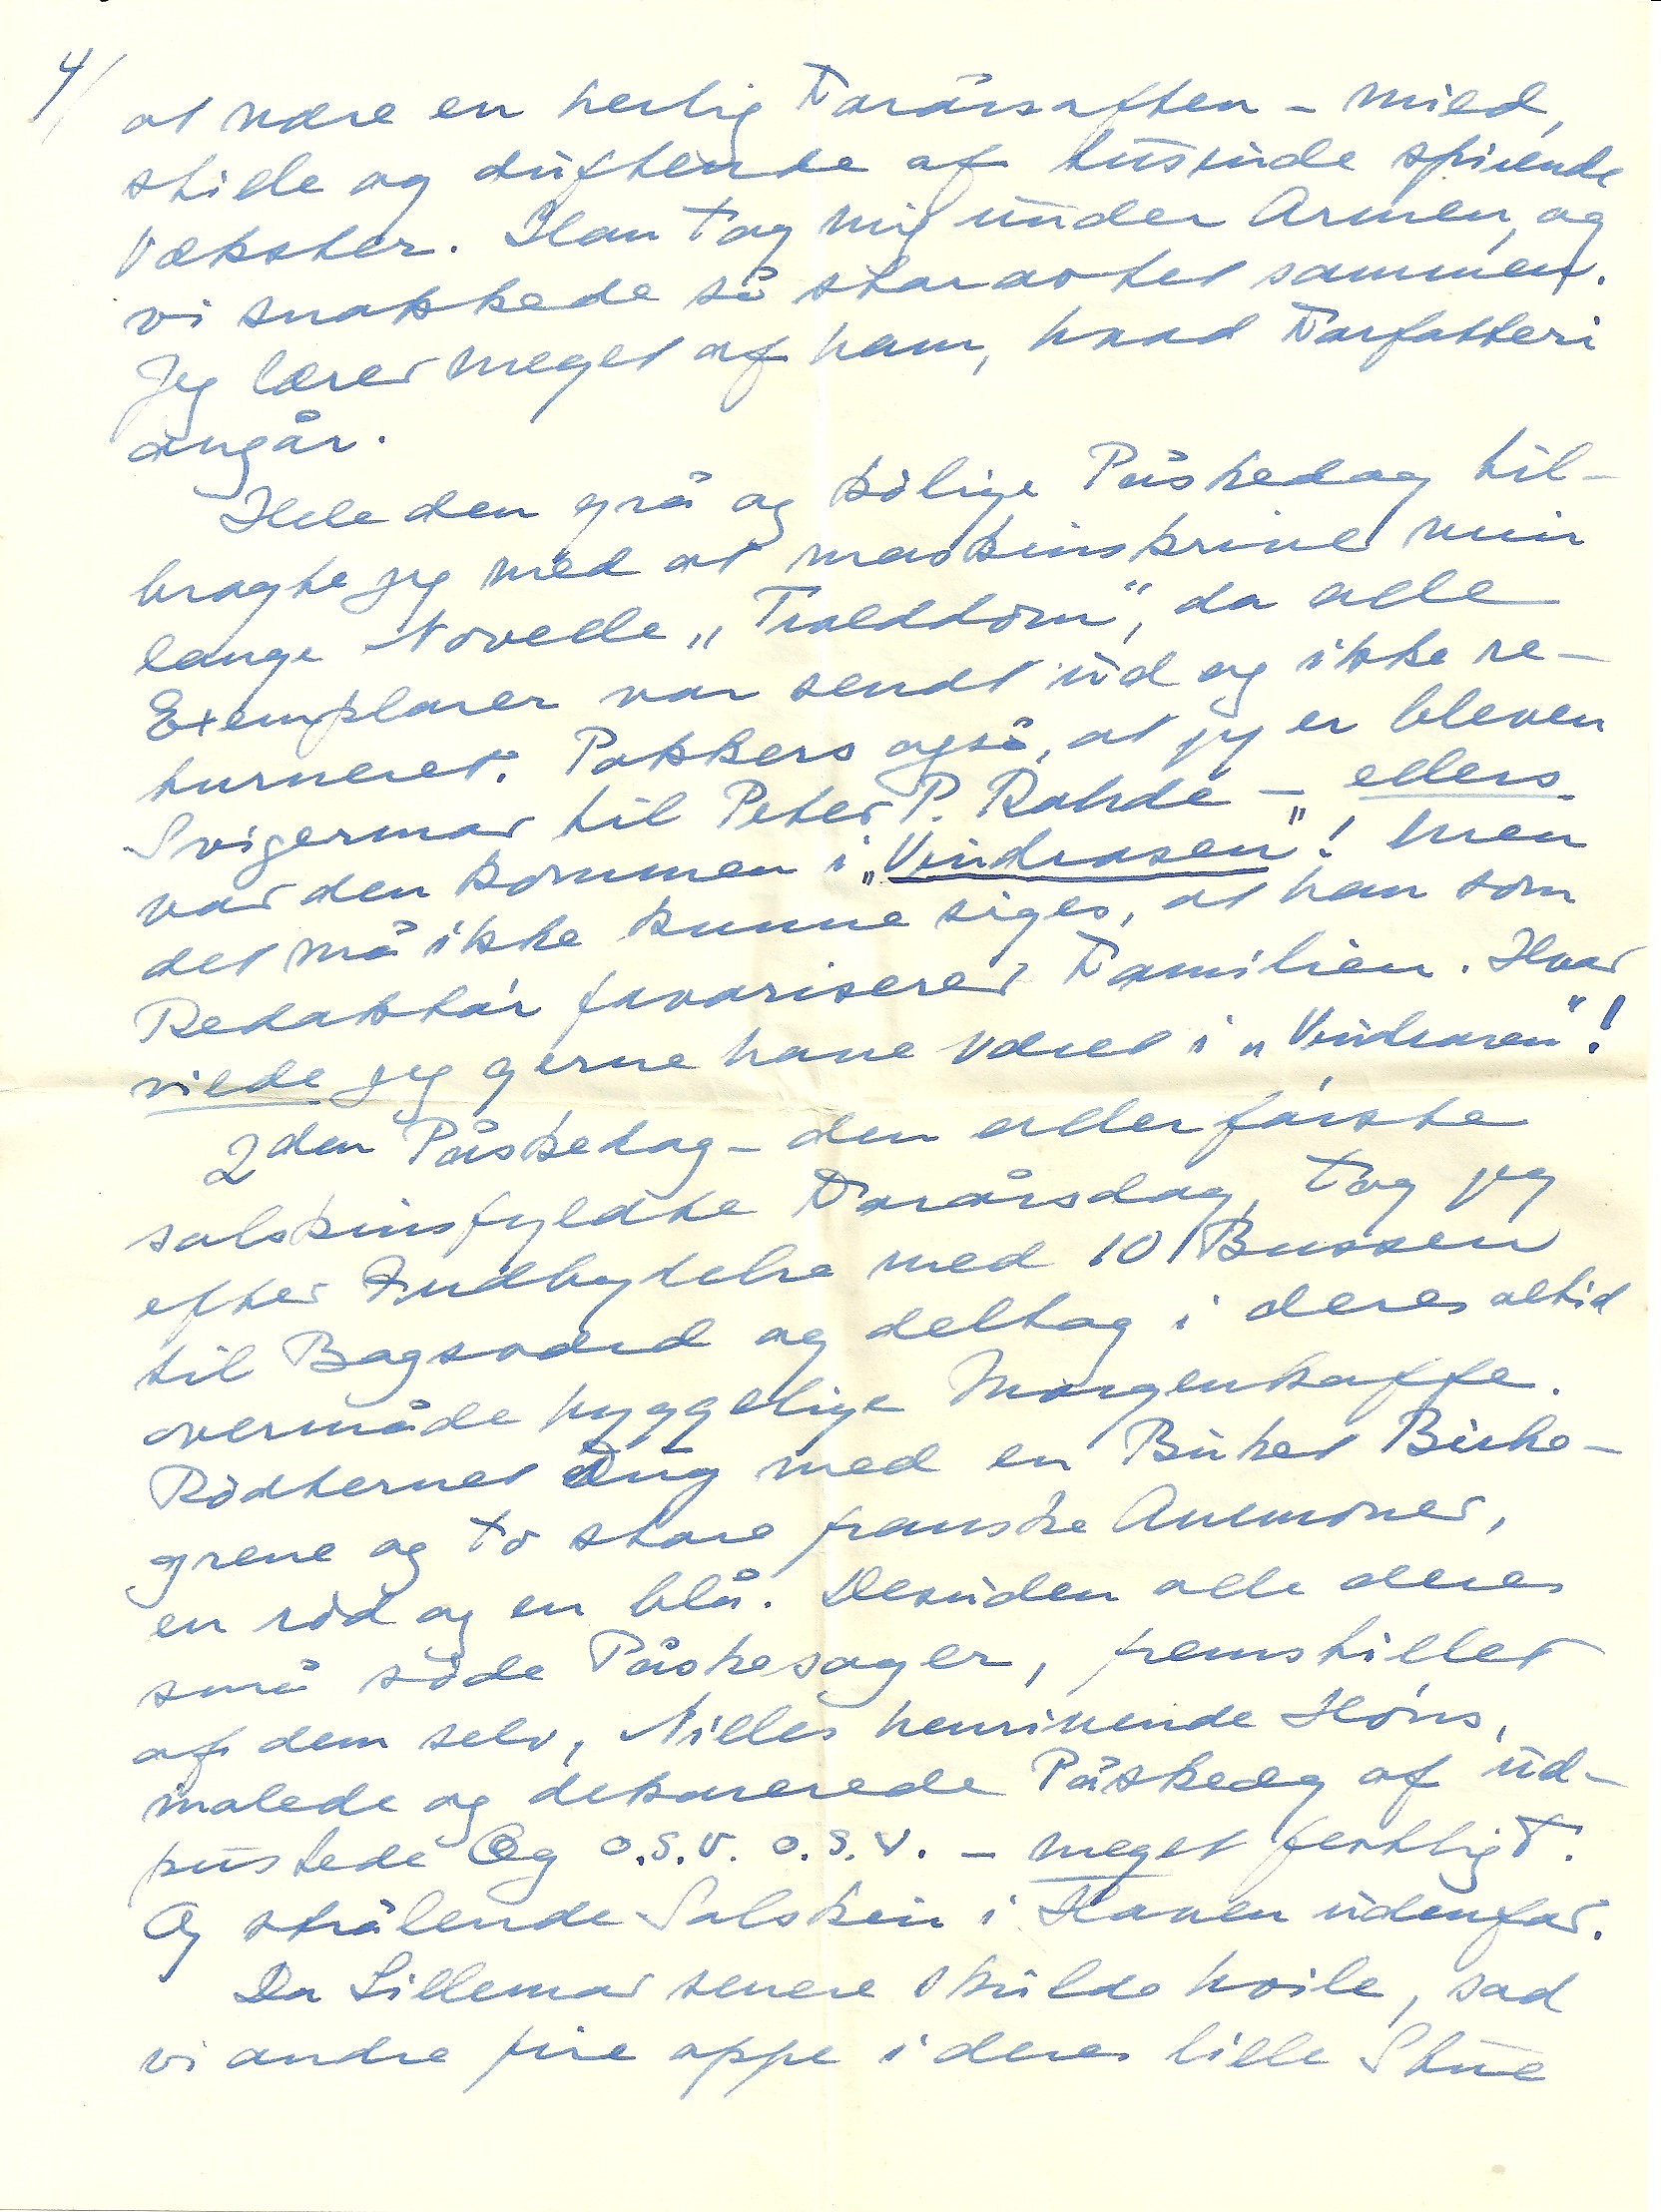 4/
at være en herlig Forårsaften – mild,
stille og duftende af tusinde spirende
Vækster. Han tog mig under Armen, og
vi snakkede så storartet sammen.
Jeg lærer meget af ham, hvad Forfatteri
angår.
Hele den grå og kølige Påskedag til-
bragte jeg med at maskinskrive min
lange Novelle „Trolddom", da alle
Exemplarer var sendt ud og ikke re-
turneret. Pokkers også, at jeg er bleven
Svigermor til Peter P. Rohde – ellers
var den kommen i „Vindrosen"! Men
det må ikke kunne siges, at han som
Redaktør favoriserer Familien. Hvor
vilde jeg gerne have været i „Vindrosen"!
2den Påskedag – den allerførste
solskinsfyldte Forårsdag, tog jeg
efter Indbydelse med 10 Bussen
til Bagsværd og deltog i deres altid
overmåde hyggelige Morgenkaffe.
Rødternet Dug med en Buket Birke-
grene og to store franske Anemoner,
en rød og en blå. Desuden alle deres
små søde Påskesager, fremstillet
af dem selv, Nilles henrivende Høns,
malede og dekorerede Påskeæg af ud-
pustede Æg o.s.v. o.s.v. – meget festligt.
Og strålende Solskin i Haven udenfor.
Da Lillemor senere skulde hvile, sad
vi andre fire oppe i deres lille Stue